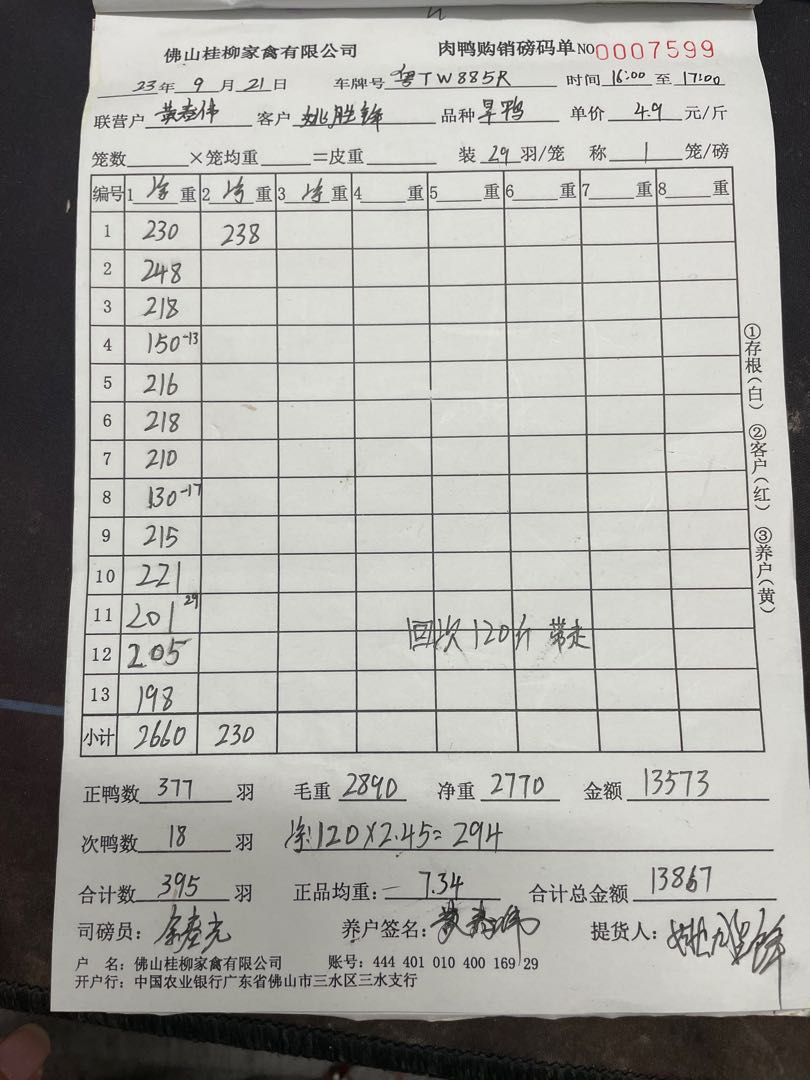 佛山桂柳家禽有限公司 肉鸭购销磅码单 NO 0007599
23年 9月 21日 车牌号 粤TW885R 时间 16:00 至 17:00
联营户 黄寿伟 客户 姚胜锋 品种 旱鸭 单价 4.9 元/斤
笼数 ×笼均重 =皮重 装 29 羽/笼 称 1 笼/磅
编号 1 净 重 2 净 重 3 净 重 4 重 5 重 6 重 7 重 8 重
1 230 238
2 248
3 218
4 150-13
5 216
6 218
7 210
8 130-17
9 215
10 221
11 201 29
回次120斤 带走
12 205
13 198
小计 2660 230
正鸭数 377 羽 毛重 2890 净重 2770 金额 13573
次鸭数 18 羽 120×2.45=294
合计数 395 羽 正品均重: 7.34 合计总金额 13867
司磅员: 养户签名: 黄寿伟 提货人:
户 名: 佛山桂柳家禽有限公司 账号: 444 401 010 400 169 29
开户行: 中国农业银行广东省佛山市三水区三水支行
①存根(白) ②客户(红) ③养户(黄)